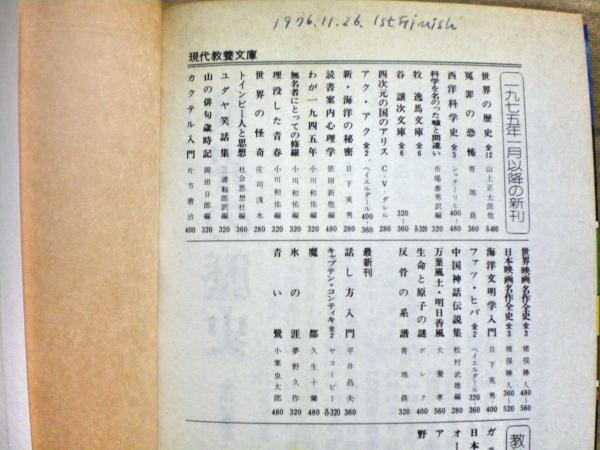 1976.11.26. 1st Finish
現代教養文庫
一九七五年一月以降の新刊
世界の歴史 全12 山上正太郎他 各400
冤罪の恐怖 青地晨 360
西洋科学史 全5 シュテーリヒ 400〜480
科学を名のった嘘と間違い 市場泰男訳編 320
牧逸馬文庫 全6 各320
谷譲次文庫 全6 320〜360
四次元の国のアリス C・V・ダレル 280
アク・アク 全2 ヘイエルダール 400・360
新・海洋の秘密 日下実男 280
読書案内心理学 依田新他編 480
わが一九四五年 小川和佑編 320
無名者にとっての修羅 小川和佑編 320
埋没した青春 小川和佑編 320
世界の怪奇 庄司浅水 280
トインビー人と思想 社会思想社編 360
ユダヤ笑話集 三浦靱郎訳編 320
山の俳句歳時記 岡田日郎編 320
カクテル入門 片方善治 400
世界映画名作全史 全3 猪俣勝人 480〜560
日本映画名作全史 全3 猪俣勝人 360〜520
海洋文明学入門 日下実男 400
ファツ・ヒバ 全2 ヘイエルダール 320・360
中国神話伝説集 松村武雄編 280
万葉風土・明日香風 犬養孝 560
生命と原子の謎 ポレク 400
反骨の系譜 青地晨 320
最新刊
話し方入門 平井昌夫 360
キャプテン・コンティキ 全2 ヤコービー 各320
魔都 久生十蘭 480
氷の涯 夢野久作 320
青い鷺 小栗虫太郎 480
教
ガ
日本
オー
ア
野